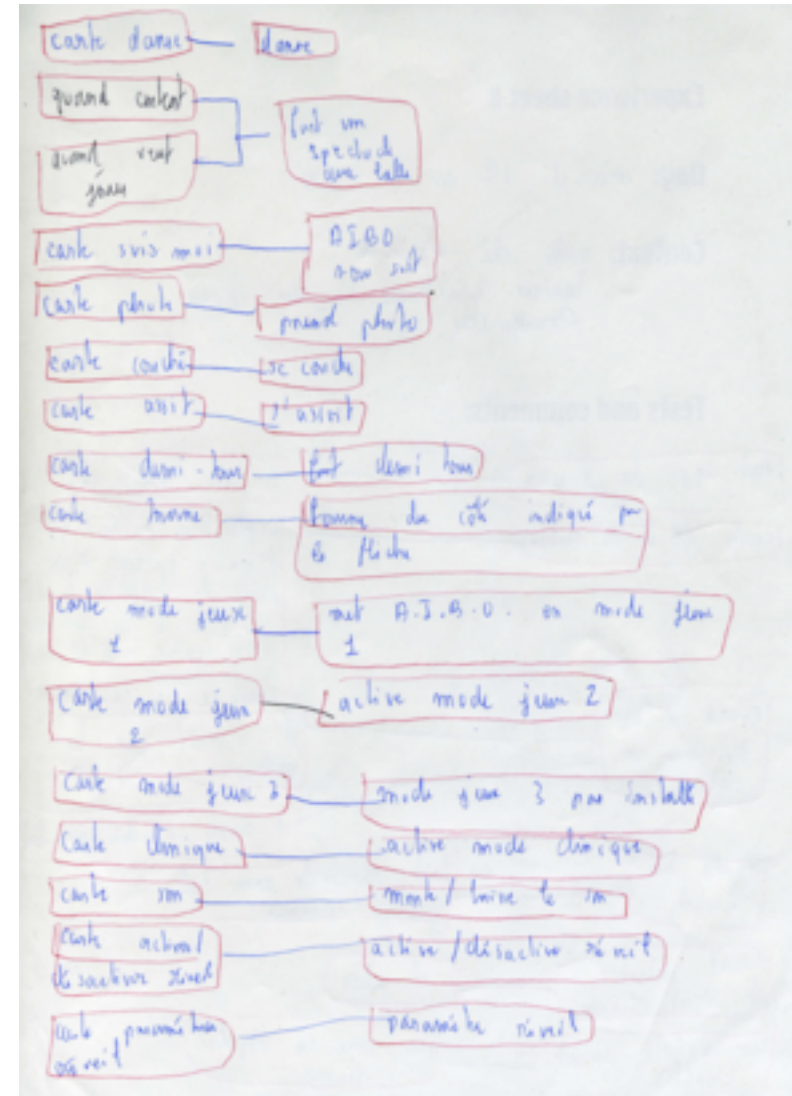 carte danse danse
quand content
fait son
spectacle
une balle
quand veut
jouer
carte suis moi AIBO
nou suit
carte photo prend photo
carte couché se couche
carte assit s'assoit
carte demi-tour fait demi tour
carte tourne tourne du côté indiqué par
la flèche
carte mode jeux met A.I.B.O. en mode jeux
1 1
carte mode jeux active mode jeux 2
2
carte mode jeux 3 mode jeux 3 pas installé
carte clinique active mode clinique
carte son monte/baisse le son
carte activer/ active/désactive réveil
désactiver réveil
carte paramètre paramètre réveil
réveil